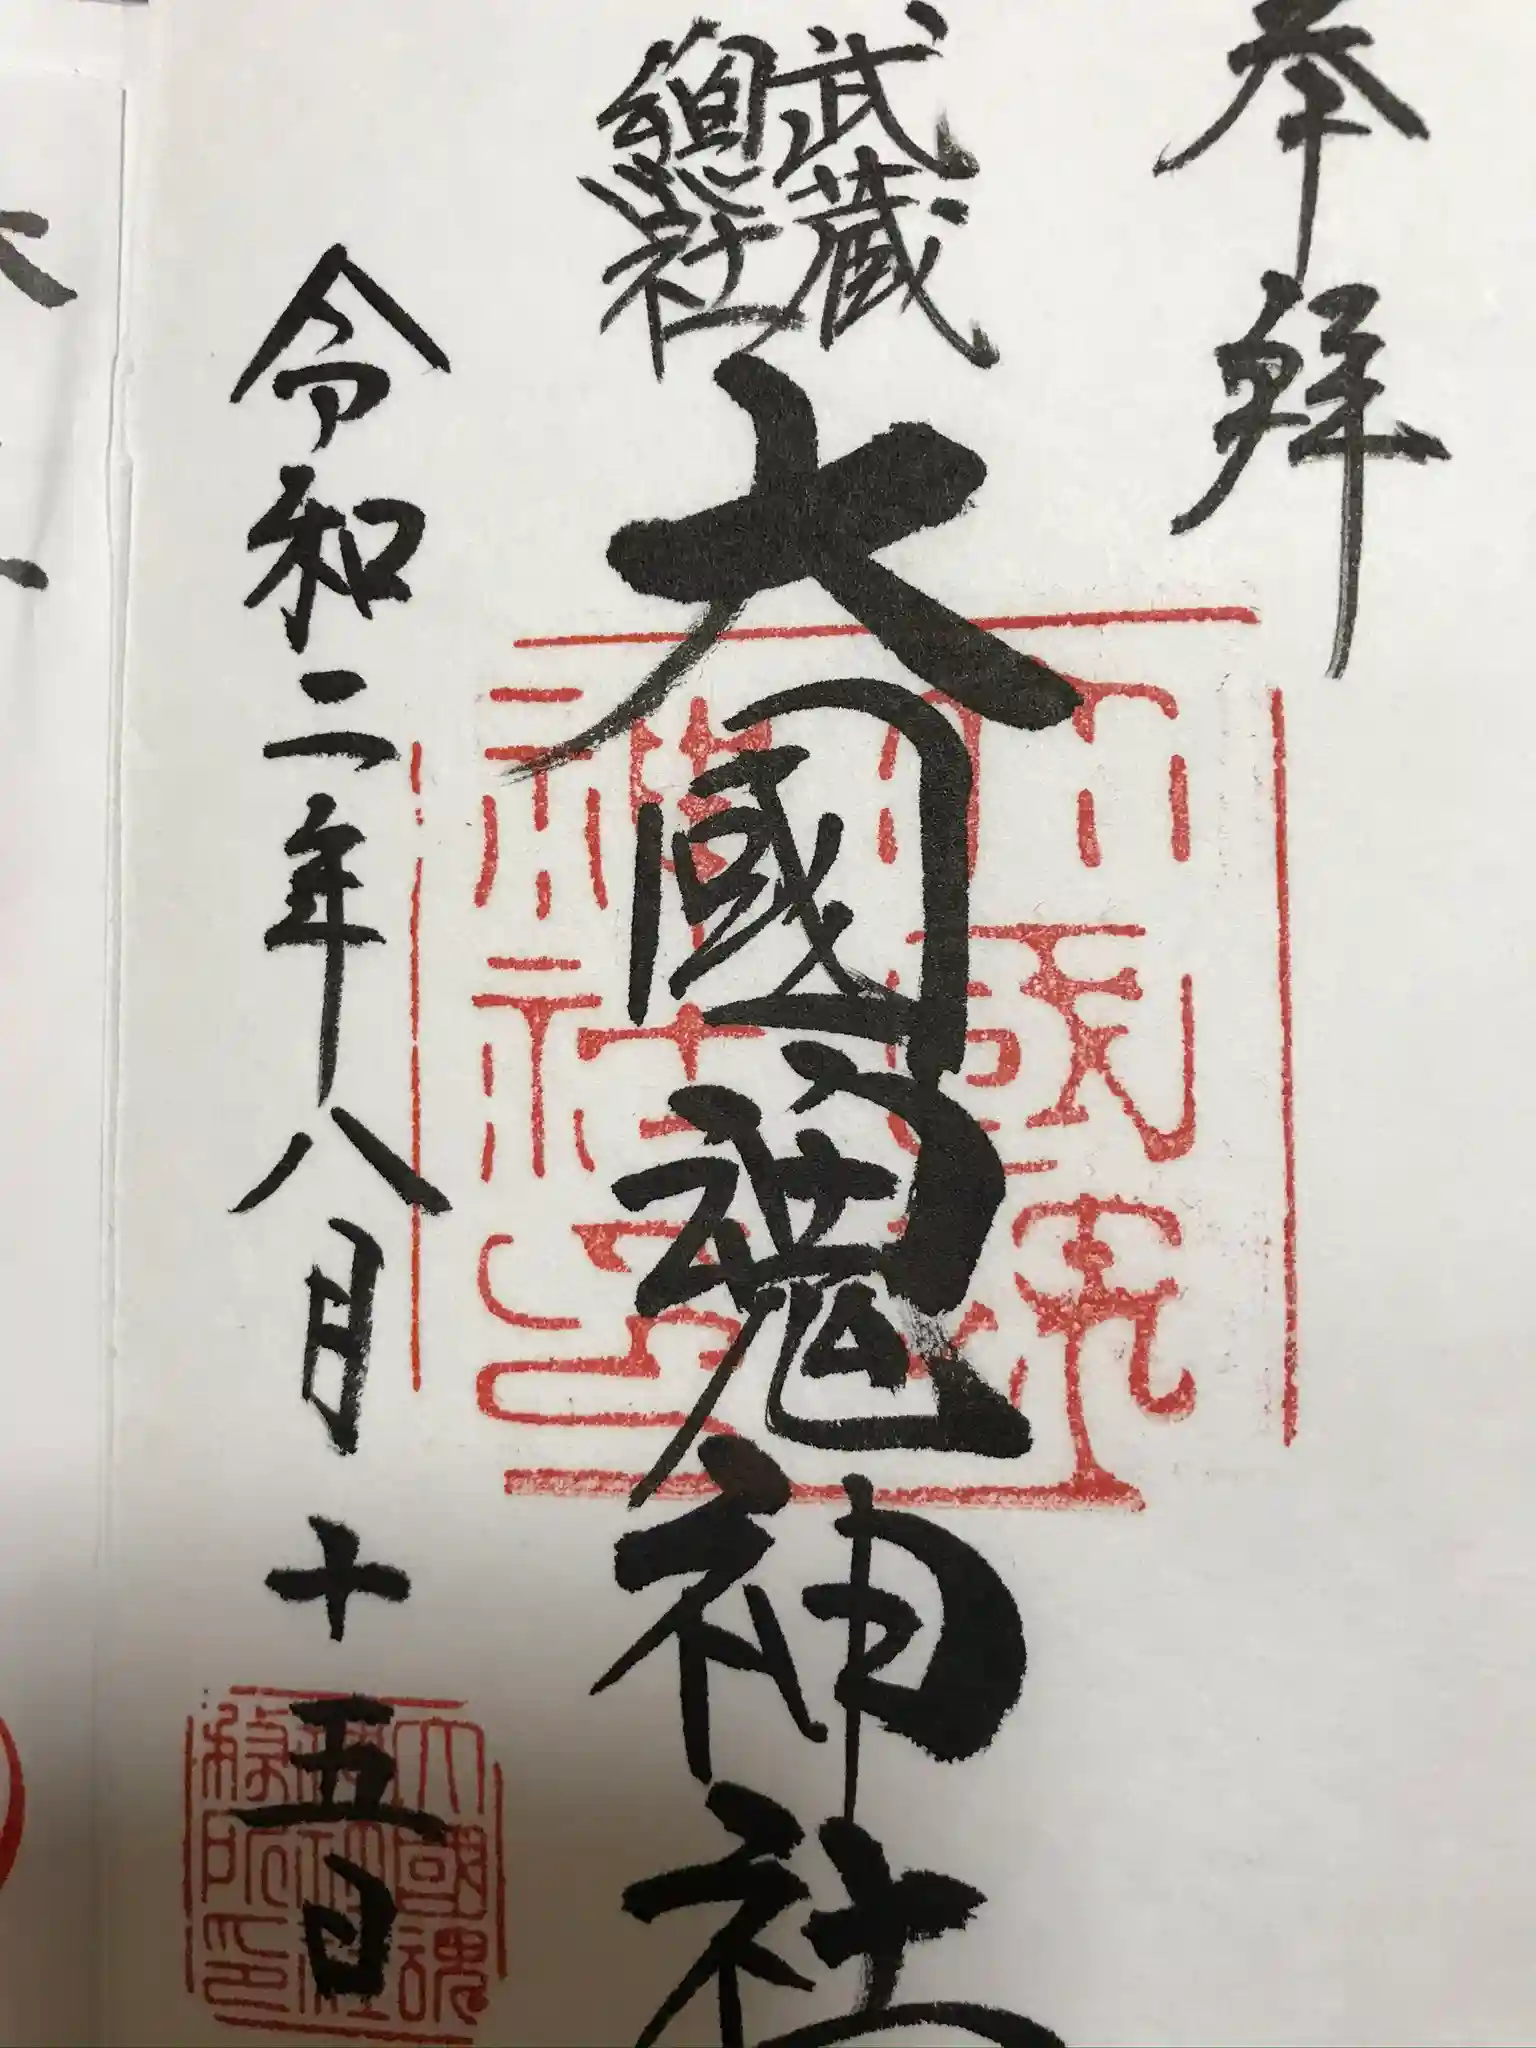 奉拜
武蔵
總社
大國魂神社
令和二年八月十五日
大國魂
神社
務所印